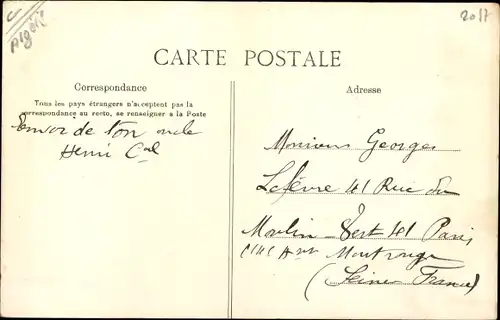 Algérie
2017
CARTE POSTALE
Correspondance
Tous les pays étrangers n'acceptent pas la
correspondance au recto, se renseigner a la Poste
Envoi de ton oncle
Henri
Adresse
Monsieur Georges
Lefèvre 41 Rue du
Moulin-Vert 41 Paris
Montrouge
(Seine France)